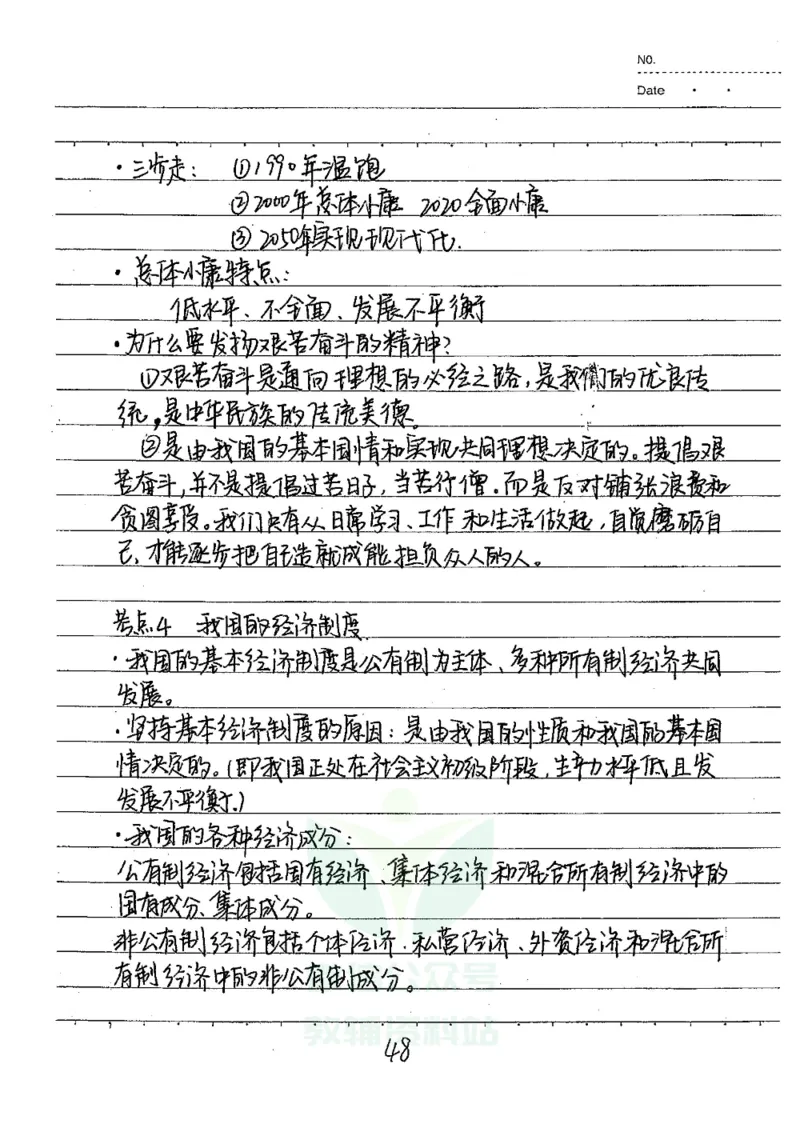 NO.
Date
·三步走：①1990年温饱
②2000年总体小康 2020全面小康
③2050年实现现代化.
·总体小康特点：
低水平、不全面、发展不平衡
·为什么要发扬艰苦奋斗的精神？
①艰苦奋斗是通向理想的必经之路，是我们的优良传
统，是中华民族的传统美德。
②是由我国的基本国情和实现共同理想决定的。提倡艰
苦奋斗，并不是提倡过苦日子，当苦行僧.而是反对铺张浪费和
贪图享受。我们只有从日常学习、工作和生活做起，自觉磨砺自
己，才能逐步把自己造就成能担负众人的人。
考点4 我国的经济制度
·我国的基本经济制度是公有制为主体、多种所有制经济共同
发展。
·坚持基本经济制度的原因：是由我国的性质和我国的基本国
情决定的。（即我国正处在社会主义初级阶段，生产力水平低且发
发展不平衡.）
·我国的各种经济成分：
公有制经济包括国有经济、集体经济和混合所有制经济中的
国有成分、集体成分。
非公有制经济包括个体经济.私营经济、外资经济和混合所
有制经济中的非公有制成分。
公众号
教辅资料站
48